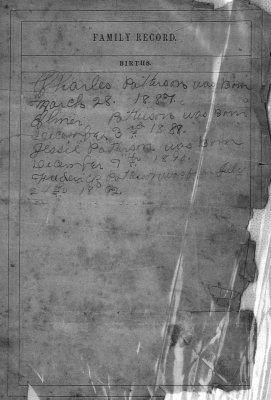 FAMILY RECORD.
BIRTHS.
Charles Patterson was Born
March 28. 1887.
Elmer Patterson was Born
December 3 1888.
Jessie Patterson was Born
December 7 1890.
Frederick Patterson was born July